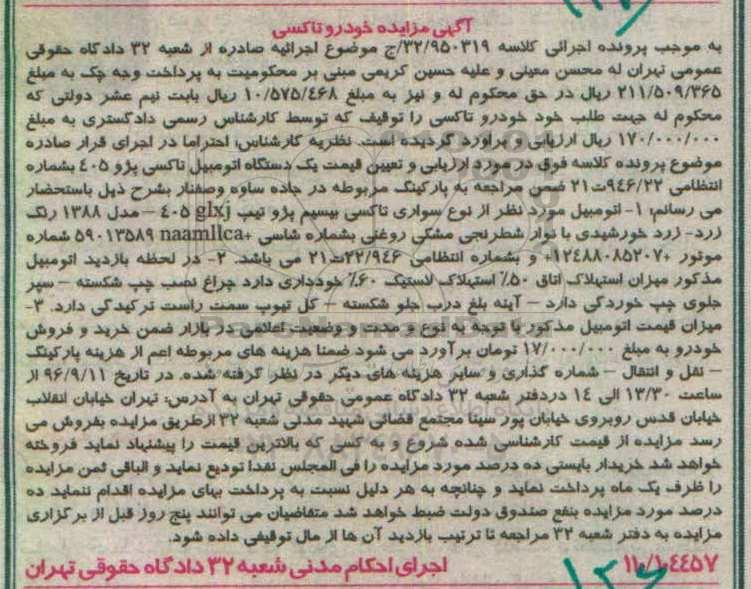 آگهی مزایده خودرو تاکسی
به موجب پرونده اجرائی کلاسه ۳۲/۹۵۰۳۱۹/ج موضوع اجرائیه صادره از شعبه ۳۲ دادگاه حقوقی
عمومی تهران له محسن معینی و علیه حسین کریمی مبنی بر محکومیت به پرداخت وجه چک به مبلغ
۲۱۱/۵۰۹/۳۶۵ ریال در حق محکوم له و نیز به مبلغ ۱۰/۵۷۵/٤۶۸ ریال بابت نیم عشر دولتی که
محکوم له جهت طلب خود خودرو تاکسی را توقیف که توسط کارشناس رسمی دادگستری به مبلغ
۱۷۰/۰۰۰/۰۰۰ ریال ارزیابی و براورد گردیده است. نظریه کارشناس: احتراما در اجرای قرار صادره
موضوع پرونده کلاسه فوق در مورد ارزیابی و تعیین قیمت یک دستگاه اتومبیل تاکسی پژو ٤۰۵ بشماره
انتظامی ۹٤۶/۲۲ت۲۱ ضمن مراجعه به پارکینگ مربوطه در جاده ساوه وصفنار بشرح ذیل باستحضار
می رسانم: ۱- اتومبیل مورد نظر از نوع سواری تاکسی بیسیم پژو تیپ glxj ٤۰۵ – مدل ۱۳۸۸ رنگ
زرد- زرد خورشیدی با نوار شطرنجی مشکی روغنی بشماره شاسی +naamllca ۵۹۰۱۳۵۸۹ شماره
موتور +۱۲٤۸۸۰۸۵۲۰۷+ و بشماره انتظامی ۲۲/۹٤۶ت۲۱ می باشد. ۲- در لحظه بازدید اتومبیل
مذکور میزان استهلاک اتاق ۵۰٪ استهلاک لاستیک ۶۰٪ خودداری دارد چراغ نصب چپ شکسته – سپر
جلوی چپ خوردگی دارد – آینه بلغ درب جلو شکسته – گل تیوپ سمت راست ترکیدگی دارد. ۳-
میزان قیمت اتومبیل مذکور با توجه به نوع و مدت و وضعیت اعلامی در بازار ضمن خرید و فروش
خودرو به مبلغ ۱۷/۰۰۰/۰۰۰ تومان برآورد می شود ضمنا هزینه های مربوطه اعم از هزینه پارکینگ
– نقل و انتقال – شماره گذاری و سایر هزینه های دیگر در نظر گرفته شده. در تاریخ ۹۶/۹/۱۱ از
ساعت ۱۳/۳۰ الی ۱٤ دردفتر شعبه ۳۲ دادگاه عمومی حقوقی تهران به آدرس: تهران خیابان انقلاب
خیابان قدس روبروی خیابان پور سینا مجتمع قضائی شهید مدنی شعبه ۳۲ ازطریق مزایده بفروش می
رسد مزایده از قیمت کارشناسی شده شروع و به کسی که بالاترین قیمت را پیشنهاد نماید فروخته
خواهد شد خریدار بایستی ده درصد مورد مزایده را فی المجلس نقدا تودیع نماید و الباقی ثمن مزایده
را ظرف یک ماه پرداخت نماید و چنانچه به هر دلیل نسبت به پرداخت بهای مزایده اقدام ننماید ده
درصد مورد مزایده بنفع صندوق دولت ضبط خواهد شد متقاضیان می توانند پنج روز قبل از برگزاری
مزایده به دفتر شعبه ۳۲ مراجعه تا ترتیب بازدید آن ها از مال توقیفی داده شود.
۱۱۰/۱۰٤٤۵۷ اجرای احکام مدنی شعبه ۳۲ دادگاه حقوقی تهران